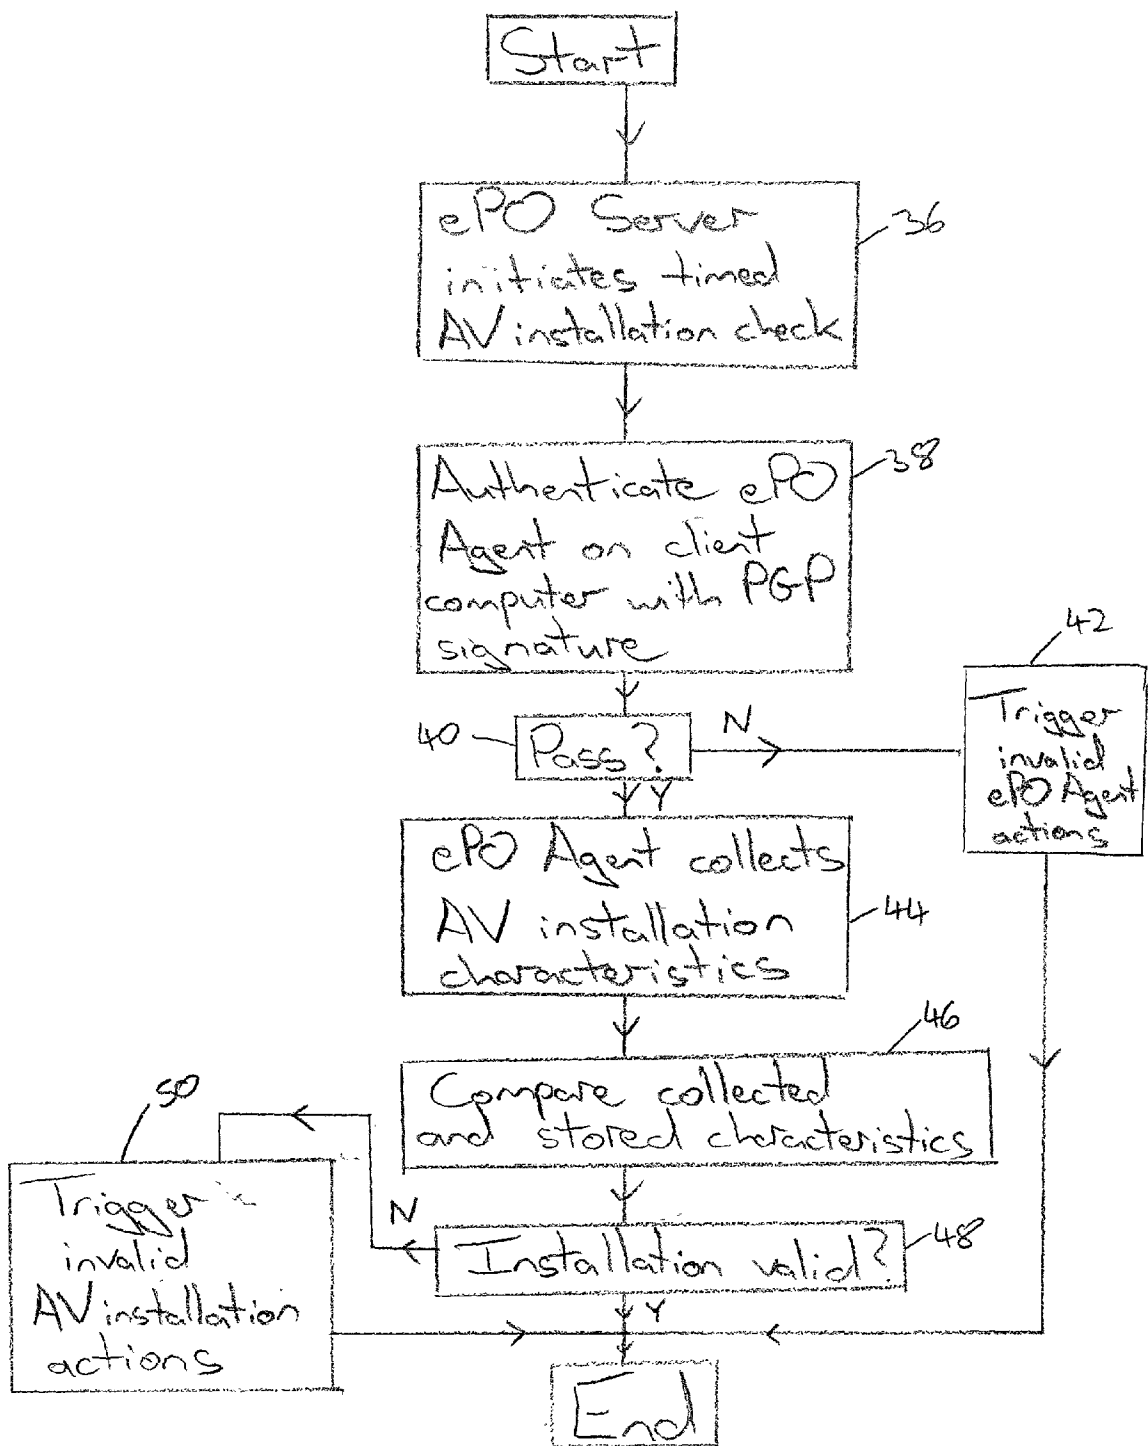 Start
ePO Server
initiates timed
AV installation check
36
Authenticate ePO
Agent on client
computer with PGP
signature
38
42
Trigger
invalid
ePO Agent
actions
40
Pass?
N
Y
ePO Agent collects
AV installation
characteristics
44
46
Compare collected
and stored characteristics
50
Trigger
invalid
AV installation
actions
N
Installation valid?
48
Y
End